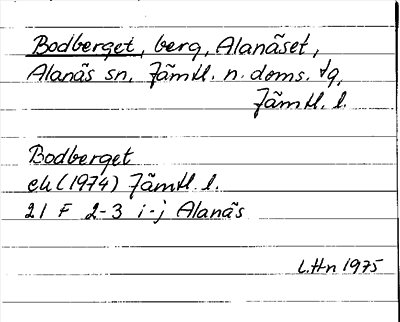 Bodberget, berg, Alanäset,
Alanäs sn, Jämtl. n. doms. tg,
Jämtl. l.
Bodberget
ek (1974) Jämtl. l.
21 F 2-3 i-j Alanäs
L.Hn 1975